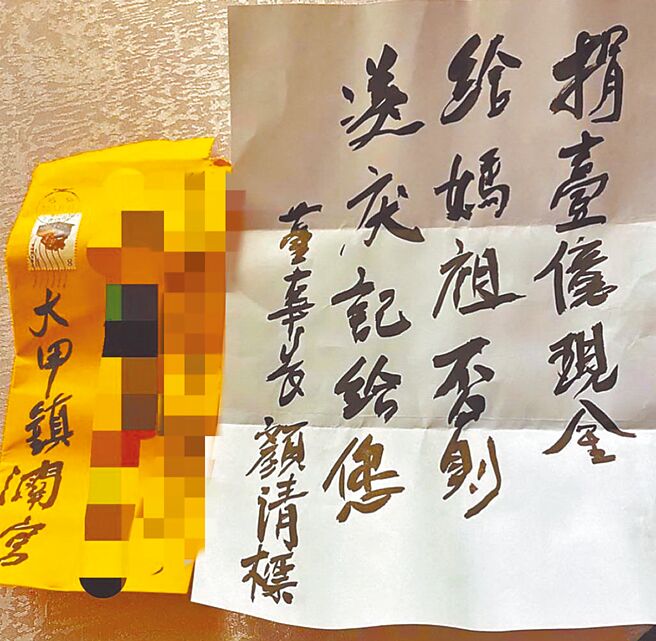 捐壹億現金
給媽祖否則
送灰記給您
董事長顏清標
大甲鎮瀾宮
8